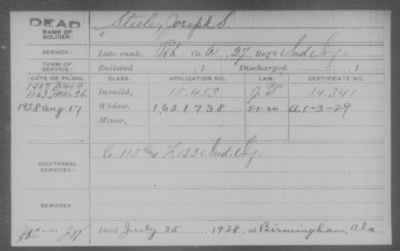 DEAD
NAME OF SOLDIER:
Steele, Joseph S.
SERVICE:
Late rank, Co. A, 27 Reg't Ind. Inf.
TERM OF SERVICE:
Enlisted , 1 Discharged , 1
DATE OF FILING. CLASS. APPLICATION NO. LAW. CERTIFICATE NO.
1863 Invalid, 15.453 14.341
1928 Aug 17 Widow, 1,621,738 A1-3-29
Minor,
ADDITIONAL SERVICES:
C. 115 & F. 133 Ind. Inf.
REMARKS:
Died July 25, 1928, at Birmingham, Ala